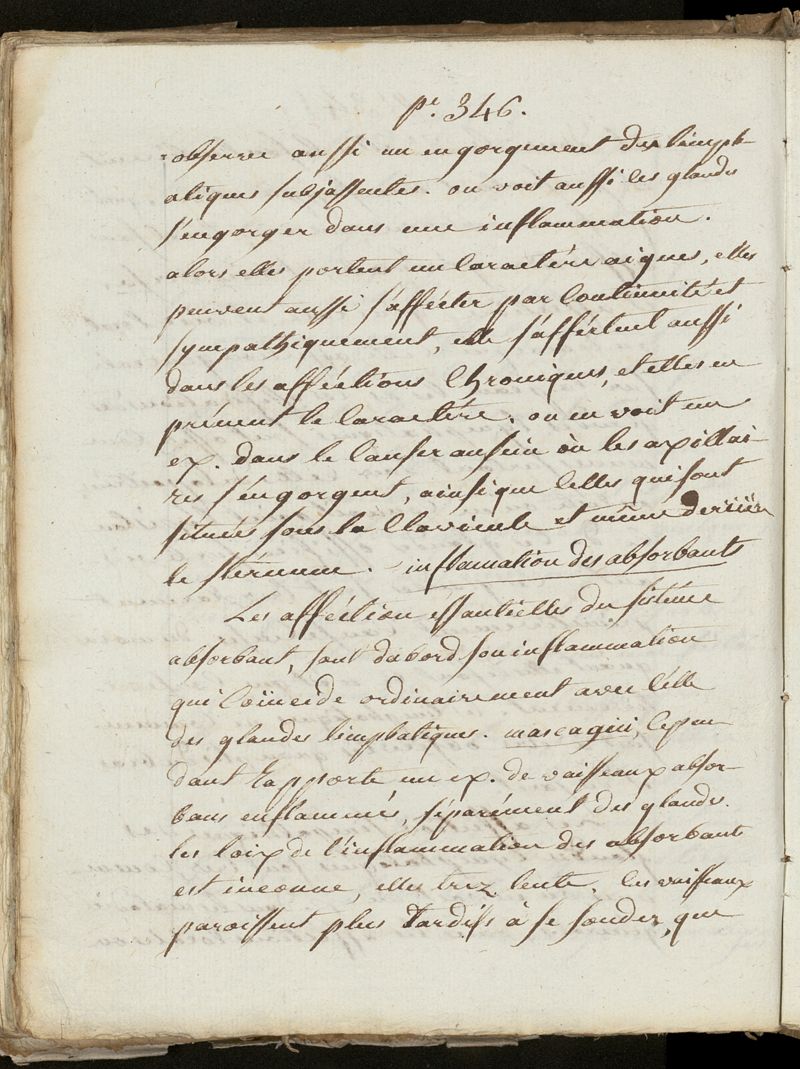 pe. 346.
observer aussi un engorgement des limph-
atiques subjassentes. on voit aussi les glandes
s'engorger dans une inflammation.
alors elles portent un Caractère aigues, elles
peuvent aussi s'afficter par Continuité et
sympathiquement, elle s'affectent aussi
dans les afféctions Chroniques, et elles en
prénent le Caractére. on en voit un
ex. dans le Canser au sein où les axillai-
res s'engorgent, ainsi que Celles qui sont
situées sous la Clavicule et même derriière
le stérnum. - inflamation des absorbants
Les afféction essantielles du sistéme
absorbant, sont d'abord son inflammation
qui Coïncide ordinairement avec Célle
des glandes limphatiques. mascagni, Cepen
dant rapporte un ex. de vaisseaux absor-
bans enflammés, séparément des glandes.
les loix de l'inflammation des absorbant
est inconnue, elle trez lente. les vaisseaux
paroissent plus tardifs à se souder, que